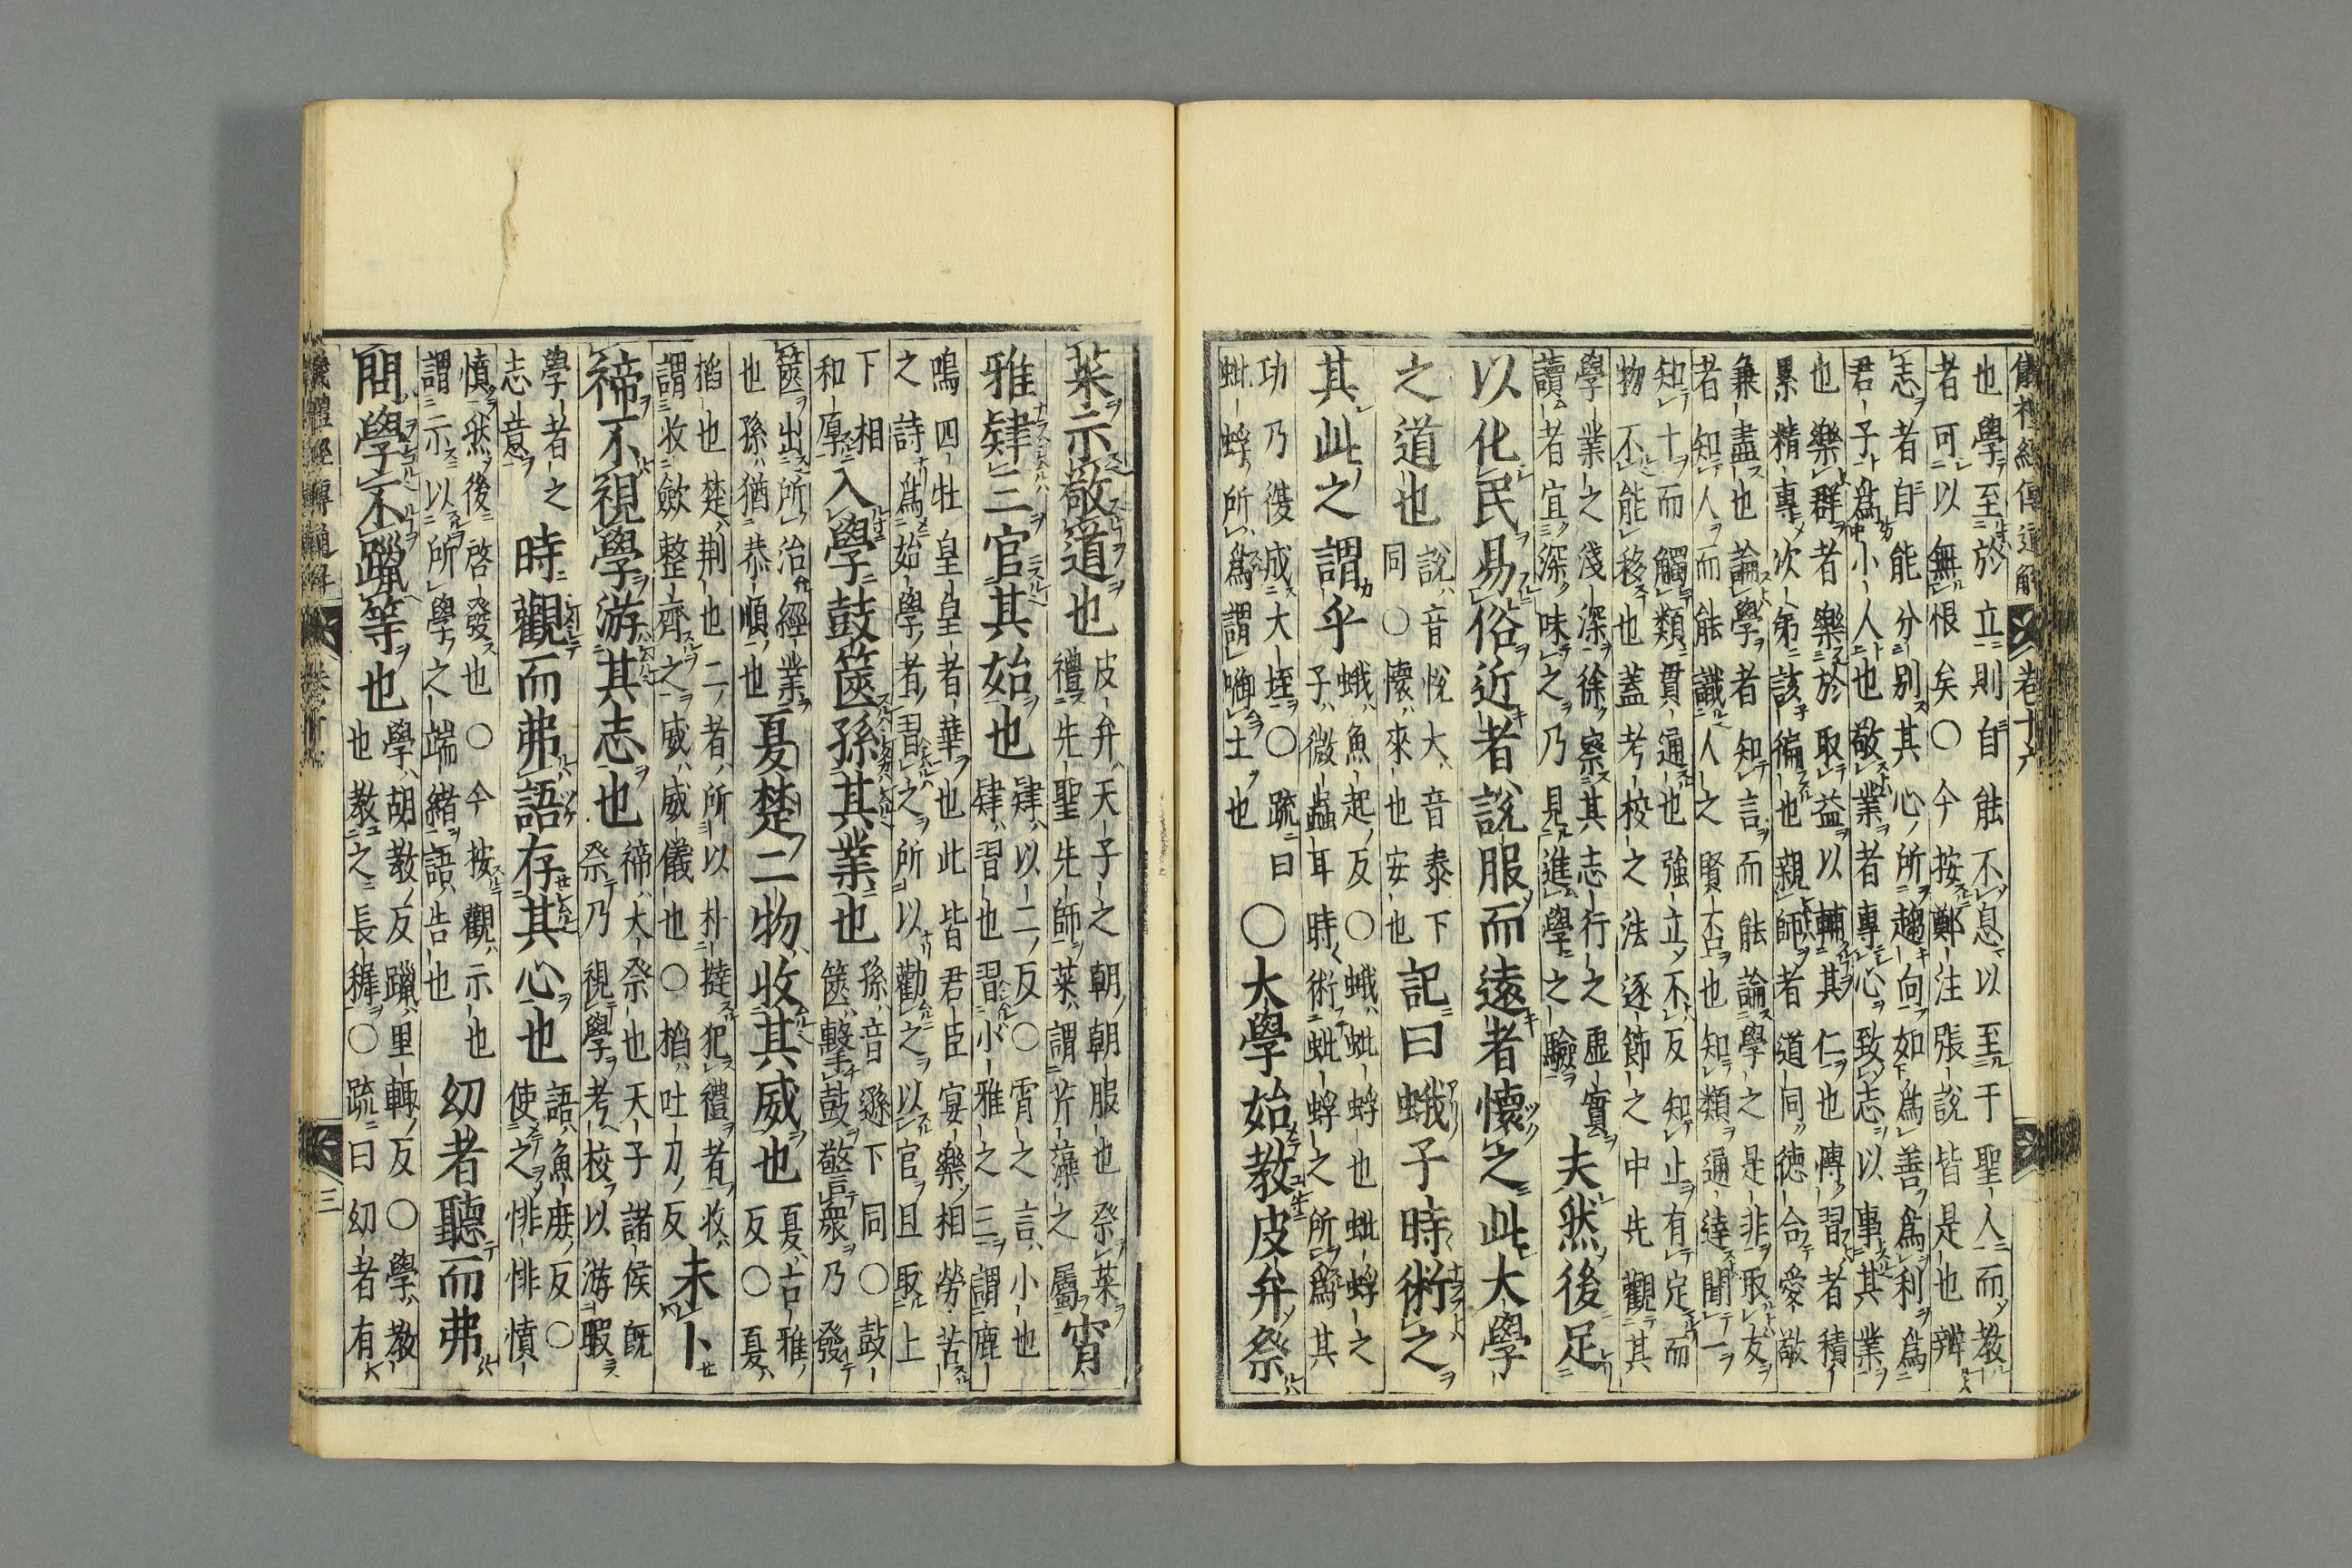 儀禮經傳通解 卷十六
也學至於立則自能不息以至于聖人而教
者可以無恨矣○今按鄭注張説皆是也辨
志者自能分别其心所趨向如爲善爲利爲
君子爲小人也敬業者專心致志以事其業
也樂群者樂於取益以輔其仁也博習者積
累精專次第該徧也親師者道同德合愛敬
兼盡也論學者知言而能論學之是非取友
者知人而能識人之賢否也知類通達聞一
知十而觸類貫通也強立不反知止有定而
物不能移也蓋考校之法逐節之中先觀其
學業之淺深徐察其志行之虛實
讀者宜深味之乃見進學之驗
夫然後足
以化民易俗近者說服而遠者懷之此大學
之道也
說音悅大音泰下
同○懷來也安也
記曰蛾子時術之
其此之謂乎
蛾魚起反○蛾蚍蜉也蚍蜉之
子微蟲耳時術蚍蜉之所爲其
功乃復成大垤○疏曰
蚍蜉所爲謂啣土也
○大學始教皮弁祭
菜示敬道也
皮弁天子之朝朝服也祭菜
禮先聖先師菜謂芹藻之屬
宵
雅肄三官其始也
肄以二反○宵之言小也
肄習也習小雅之三謂鹿
鳴四牡皇皇者華也此皆君臣宴樂相勞苦
之詩爲始學者習之所以勸之以官且取上
下相
和厚
入學鼓篋孫其業也
孫音遜下同○鼓
篋擊鼓警衆乃發
篋出所治經業
也孫猶恭順也
夏楚二物收其威也
夏古雅
反○夏
槄也楚荊也二者所以朴撻犯禮者收
謂收歛整齊之威威儀也○槄吐刀反
未卜
禘不視學游其志也
禘大祭也天子諸侯既
祭乃視學考校以游暇
學者之
志意
時觀而弗語存其心也
語魚庶反○
使之悱悱憤
慎然後啓發也○今按觀示也
謂示以所學之端緒語告也
幼者聽而弗
問學不躐等也
學胡教反躐里輒反○學教
也教之長穉○疏曰幼者有
儀禮經傳通解 三